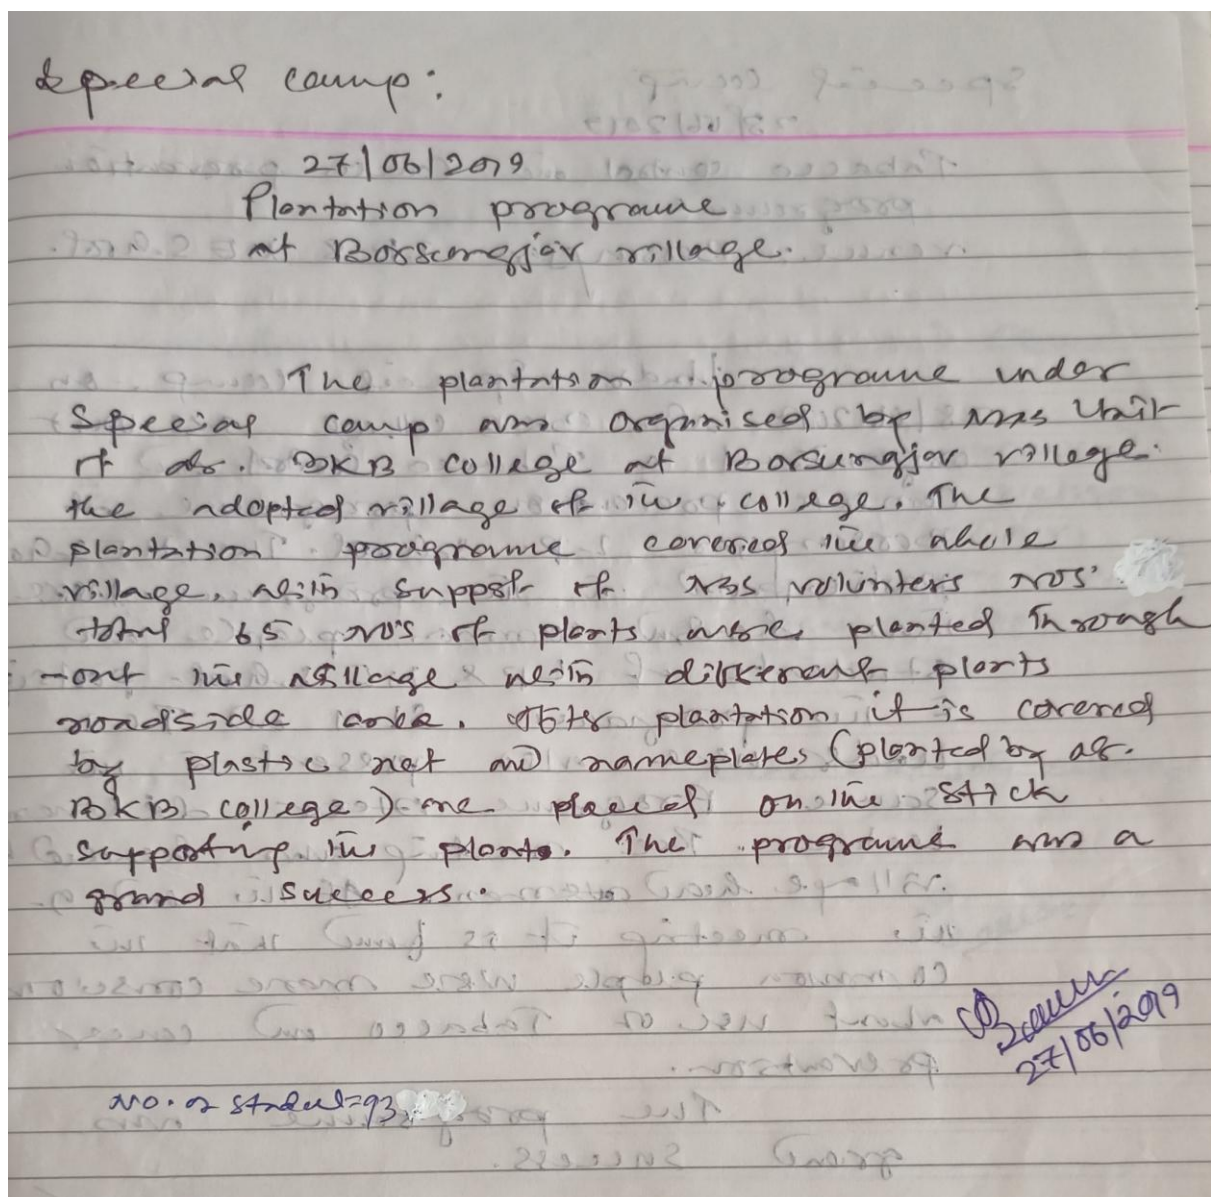 Special camp:
27/06/2019
Plantation programme
at Borsungjar village.
The plantation programme under
Special camp was organised by NSS Unit
of Dr. BKB College at Borsungjar village.
the adopted village of the college. The
plantation programme covered the whole
village, with support of NSS volunters nos.
total 65 no's of plants were planted through
-out the village with different plants
roadside area. After plantation it is covered
by plastic net and nameplates (planted by Dr.
BKB College) are placed on the stick
supporting the plants. The programme was a
grand success.
27/06/2019
No. of student=93